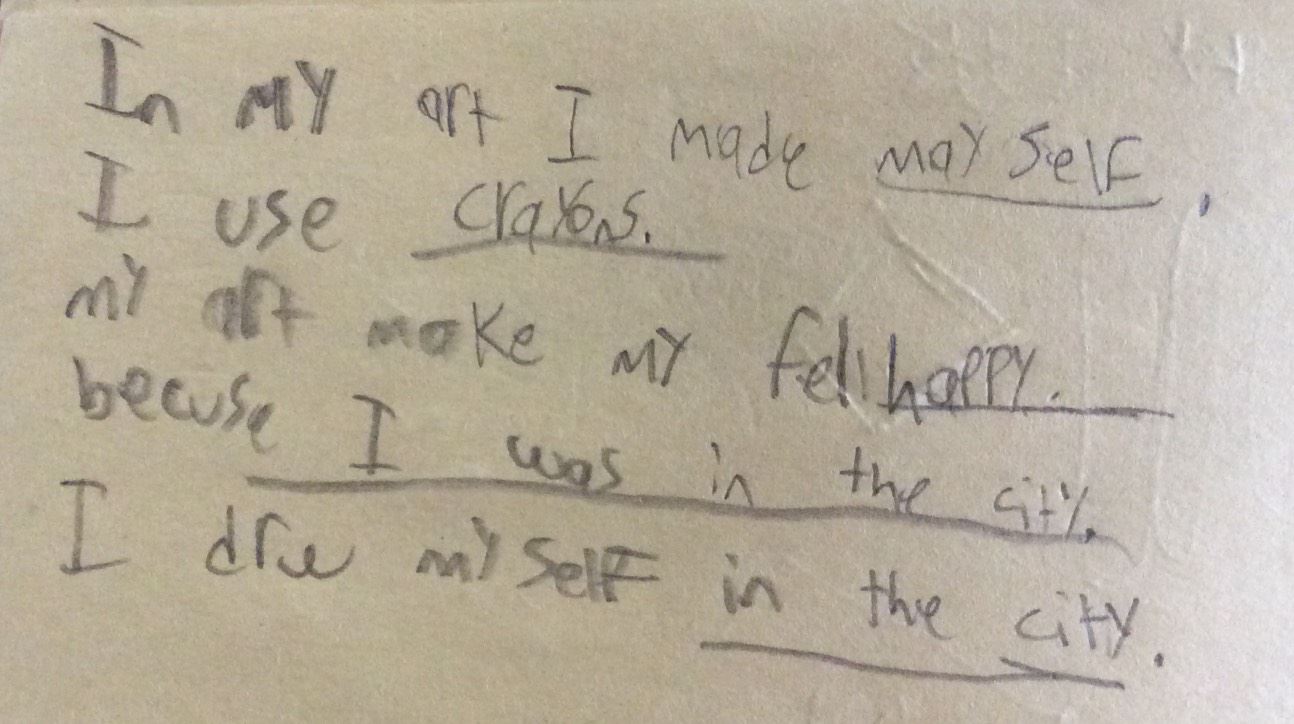 In MY art I made may self.
I use crayons.
my art make my fell happy.
becuse I was in the city.
I drew my self in the city.